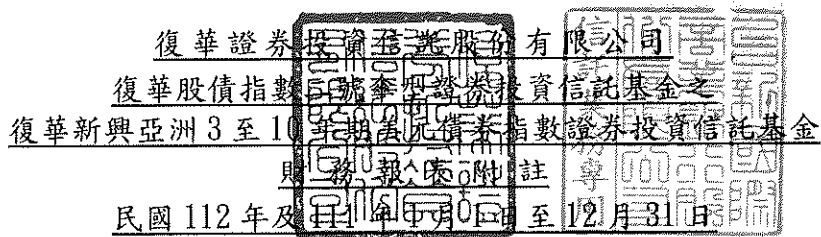 復華證券投資信託股份有限公司
復華股債指數號傘型證券投資信託基金之
復華新興亞洲3至10年期美元債券指數證券投資信託基金
財務報表附註
民國112年及111年1月1日至12月31日